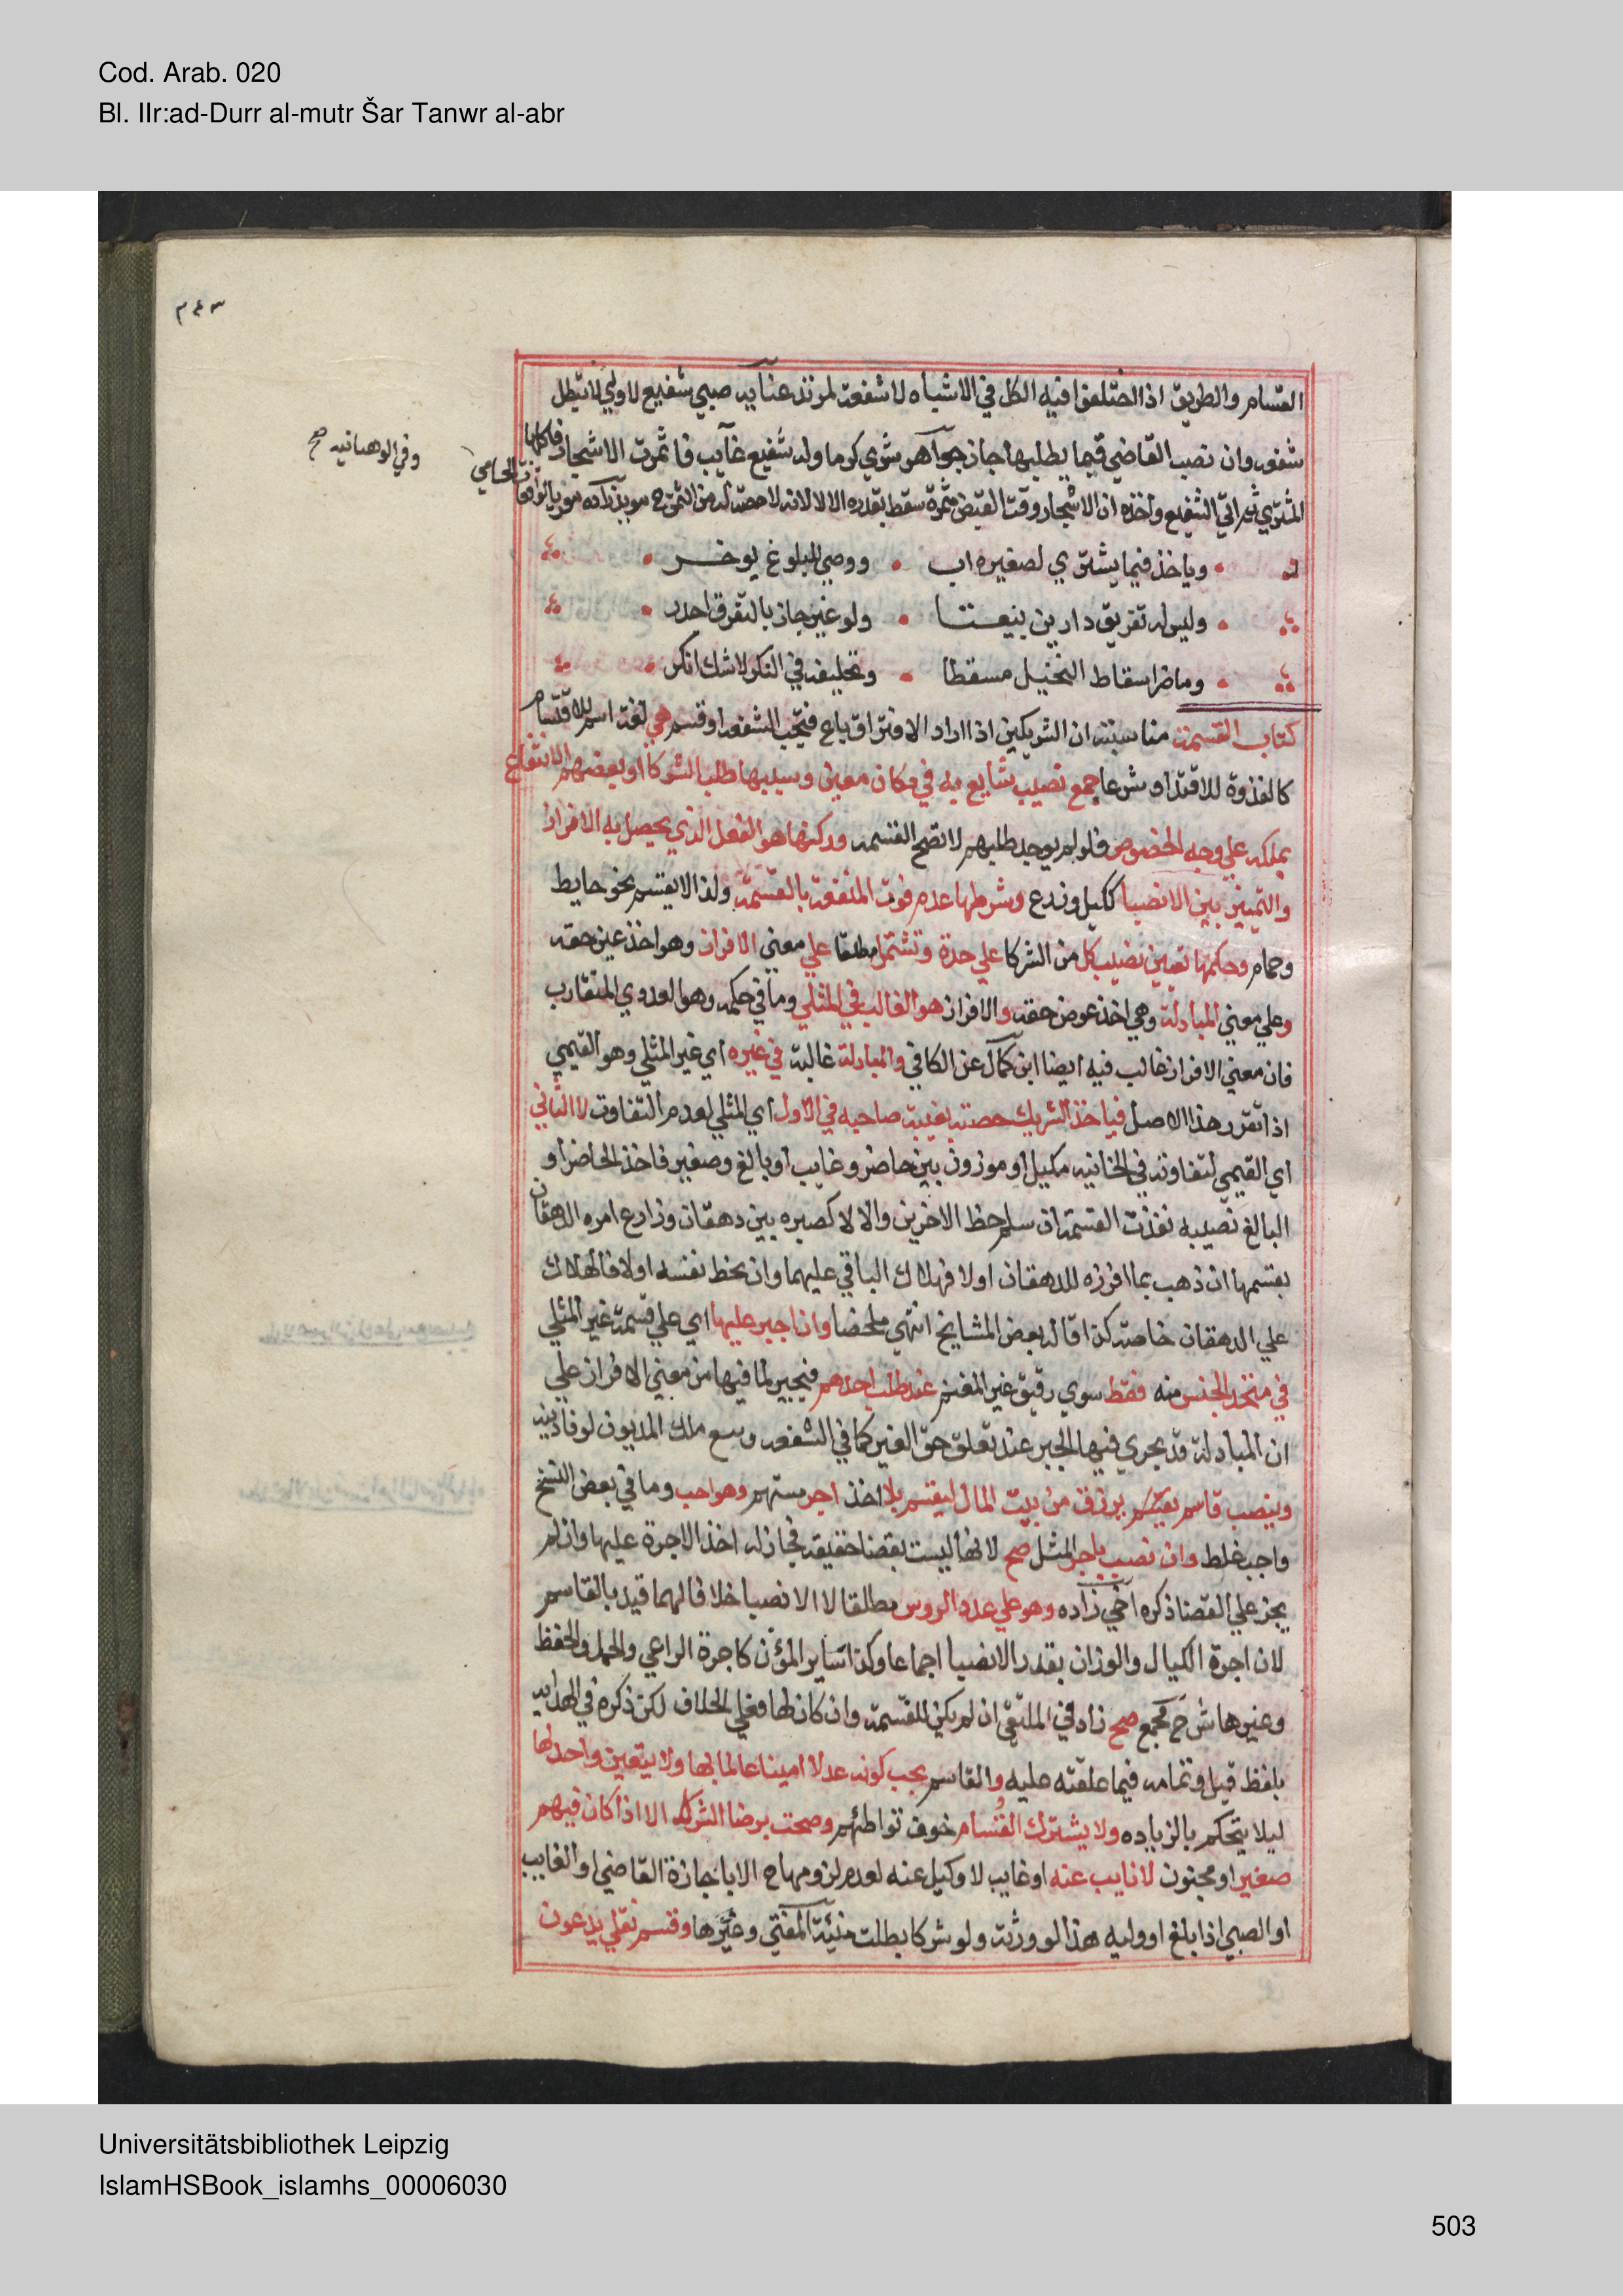 Cod. Arab. 020
Bl. IIr:ad-Durr al-mutr Šar Tanwr al-abr
٣٤٣
القسام والطريق اذا اختلفوا فيه الكل في الاشباه لا شفعة لمرتد عنايه صبي شفيع لا ولي له لا تبطل
شفعته وان نصب القاضي قيما يطلبها جاز جواهر شري كرما وله شفيع غايب فاثمرت الاشجار فاكلها
وفي الوهبانيه صح
المشتري ثم اتي الشفيع واخذه ان الاشجار وقت القبض مثمرة سقط بقدره والا لا لانه لا حصة له من الثمن ح مويد زاده معزيا لواقعات الحامي
وياخذ فيما يشتري لصغيره اب • ووصي للبلوغ يوخر
وليس له تفريق دارين بيعتا • ولو غير جار بالتفرق اجدر
وما ضر اسقاط التحيل مسقطا • وتحليفه في النكر لا شك انكر
كتاب القسمة مناسبته ان الشريكين اذا اراد الافتراق باع فتجب الشفعه او قسم هي لغة اسم للاقتسام
كالقدوة للاقتداء وشرعا جمع نصيب شايع به في مكان معين وسببها طلب الشركا او بعضهم الانتفاع
بملكه علي وجه الخصوص فلو لم يوجد طلبهم لا تصح القسمه وركنها هو الفعل الذي يحصل به الافراز
والتمييز بين الانصبا ككيل وذرع وشرطها عدم فوت المنفعة بالقسمة ولذا لا يقسم نحو حايط
وحمام وحكمها تعين نصيب كل من الشركا علي حدة وتشتمل مطلقا علي معني الافراز وهو اخذ عين حقه
وعلي معني المبادلة وهي اخذ عوض حقه والافراز هو الغالب في المثلي وما في حكمه وهو العددي المتقارب
فان معني الافراز غالب فيه ايضا ابن كمال عن الكافي والمبادلة غالبة في غيره اي غير المثلي وهو القيمي
اذا تقرر هذا الاصل فياخذ الشريك حصته بغيبة صاحبه في الاول اي المثلي لعدم التفاوت لا الثاني
اي القيمي لتفاوته في الخانيه مكيل او موزون بين حاضر وغايب او بالغ وصغير فاخذ الحاضر او
البالغ نصيبه نفذت القسمة ان سلم حظ الاخرين والا لا كصبره بين دهقان وزارع امره الدهقان
بقسمها ان ذهب بما افرزه للدهقان اولا فهلاك الباقي عليهما وان بحظ نفسه اولا فالهلاك
علي الدهقان خاصة كذا قاله بعض المشايخ انتهي ملخصا وان اجبر عليها اي علي قسمة غير المثلي
في متحد الجنس منه فقط سوي رقيق غير المغنم عند طلب احدهم فيجبر لما فيها من معني الافراز علي
ان المبادلة قد يجري فيها الجبر عند تعلق حق الغير كما في الشفعه وبيع ملك المديون لوفا دينه
وينصب قاسم يرزق من بيت المال ليقسم بلا اخذ اجر منهم وهو احب وما في بعض النسخ
واجب غلط وان نصب باجر المثل صح لانها ليست بقضا حقيقة فجاز له اخذ الاجرة عليها وان لم
يجز علي القضا ذكره اخي زاده وهو علي عدد الروس مطلقا لا الانصبا خلافا لهما قيد بالقاسم
لان اجرة الكيال والوزان بقدر الانصبا اجماعا وكذا ساير المؤن كاجرة الراعي والحمل والحفظ
وغيرها شرح مجمع صح زاد في الملتقي ان لم يكن للقسمة وان كان لها فعلي الخلاف لكن ذكره في الهدايه
بلفظ قيل وتمامه فيما علقته عليه والقاسم يجب كونه عدلا امينا عالما بها ولا يتعين واحد لها
ليلا يتحكم بالزياده ولا يشترك القسام خوف تواطئهم وصحت برضا الشركا الا اذا كان فيهم
صغير او مجنون لا نايب عنه او غايب لا وكيل عنه لعدم لزومها ح الا باجازة القاضي او الغايب
او الصبي اذا بلغ او وليه هذا لو ورثة ولو شركا بطلت منية المفتي وغيرها وقسم نقلي يدعون
Universitätsbibliothek Leipzig
IslamHSBook_islamhs_00006030
503